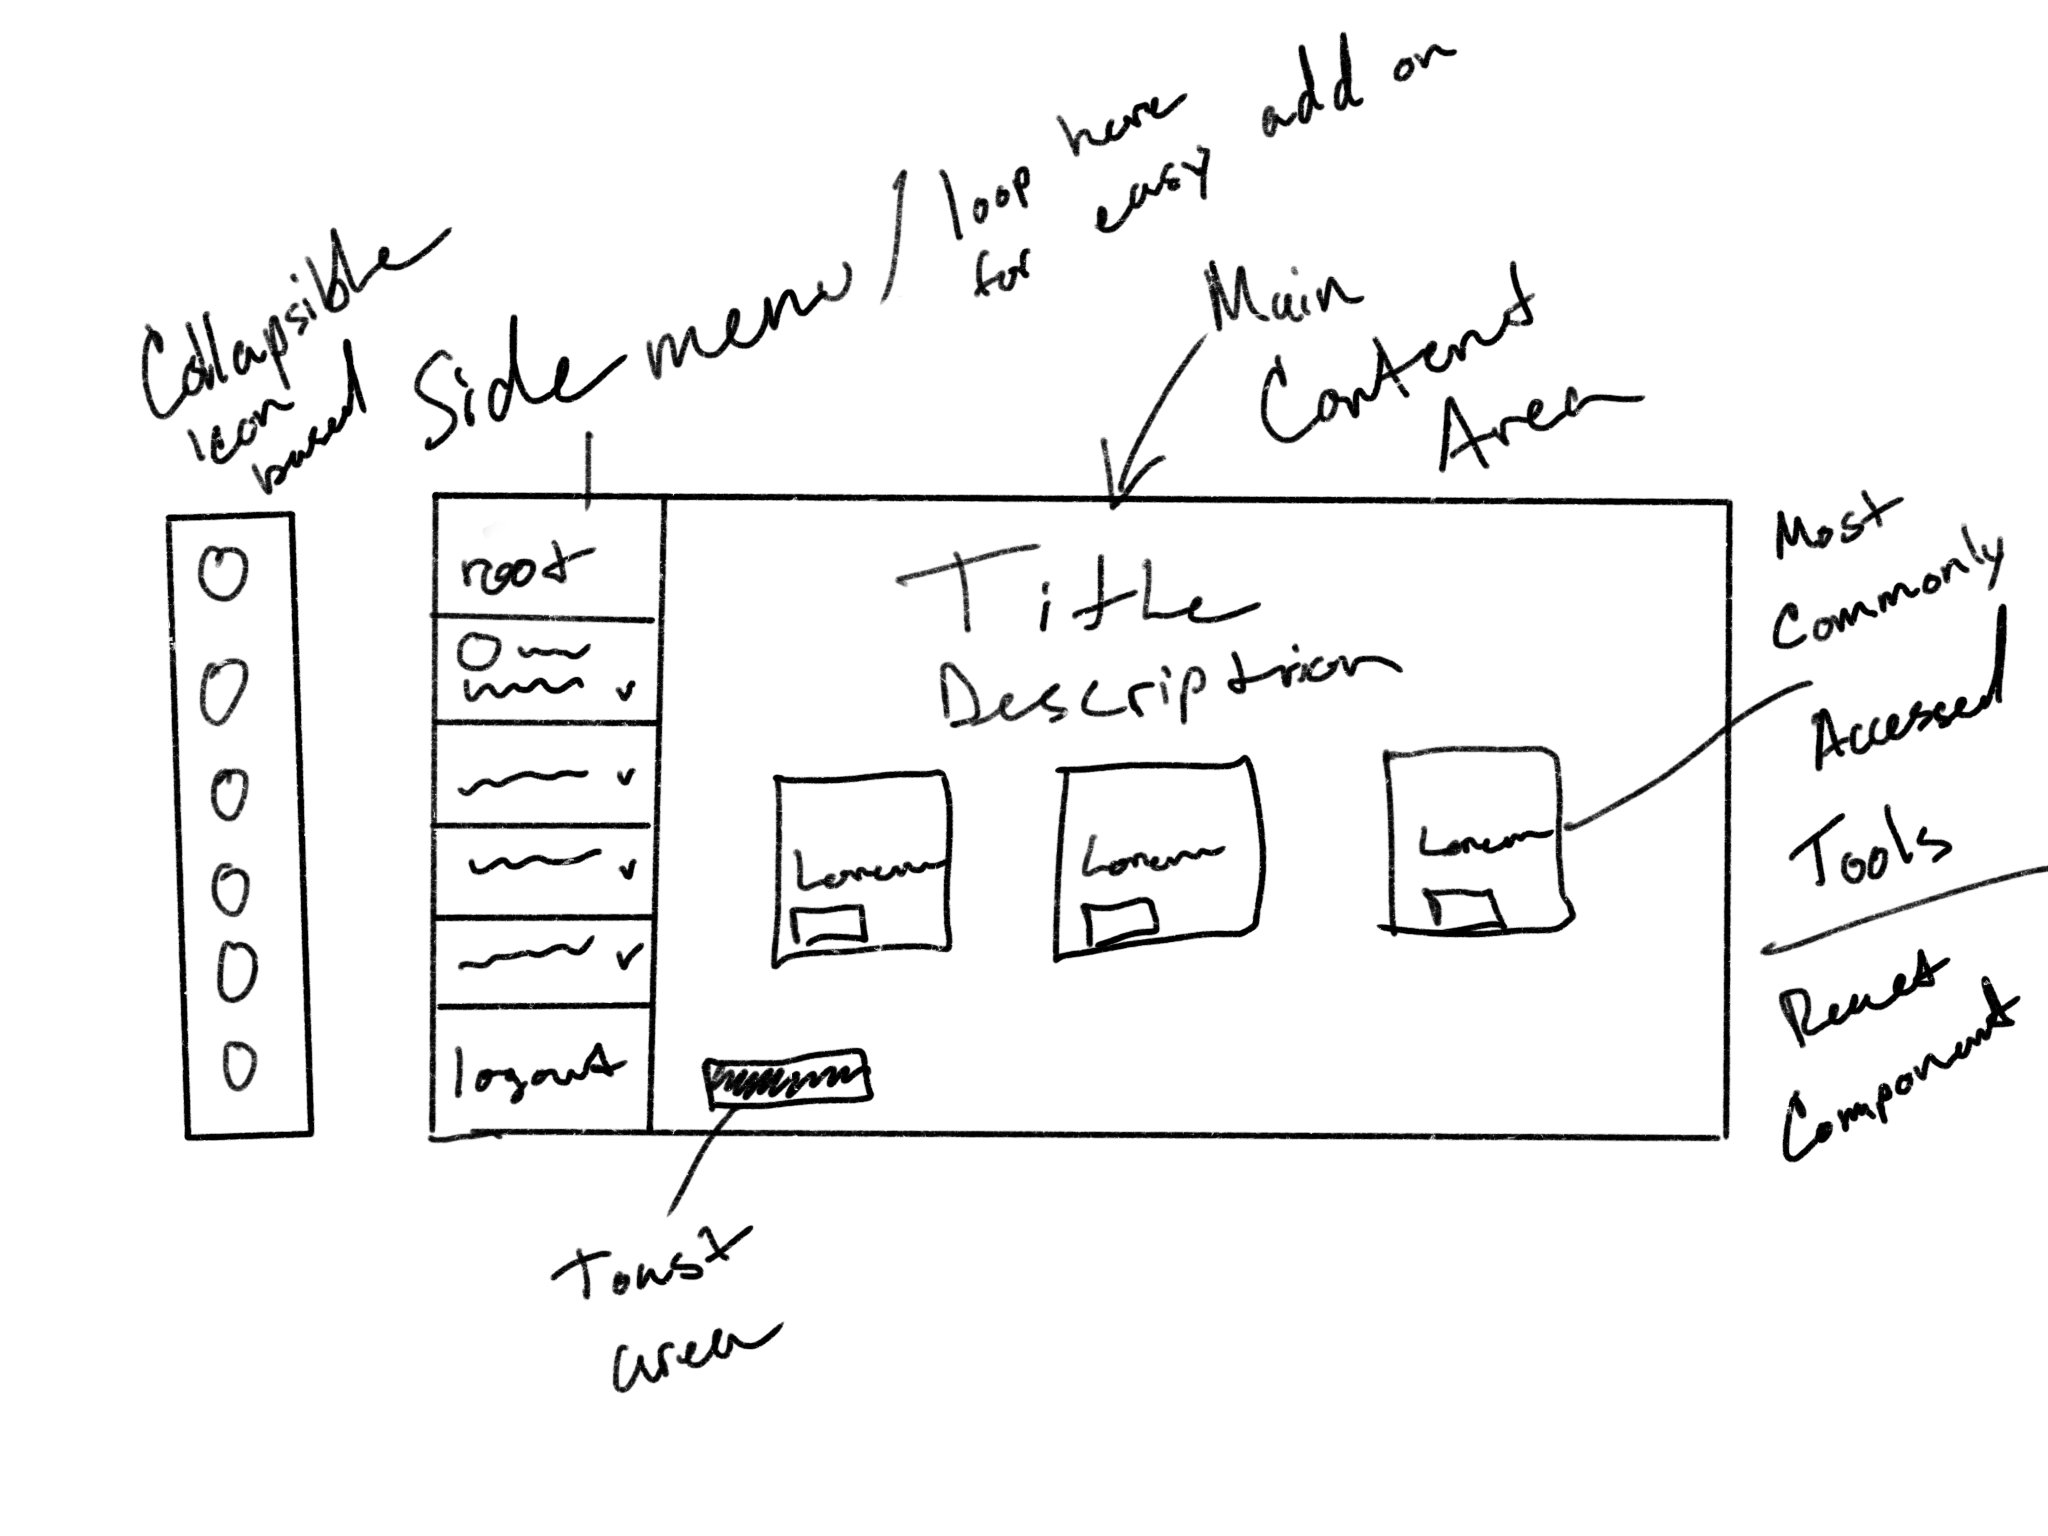 Collapsible
icon
based
Side menu / loop here
for easy add on
Main
Content
Area
root
logout
Title
Description
Lorem
Lorem
Lorem
Most
Commonly
Accessed
Tools
React
Component
Toast
area